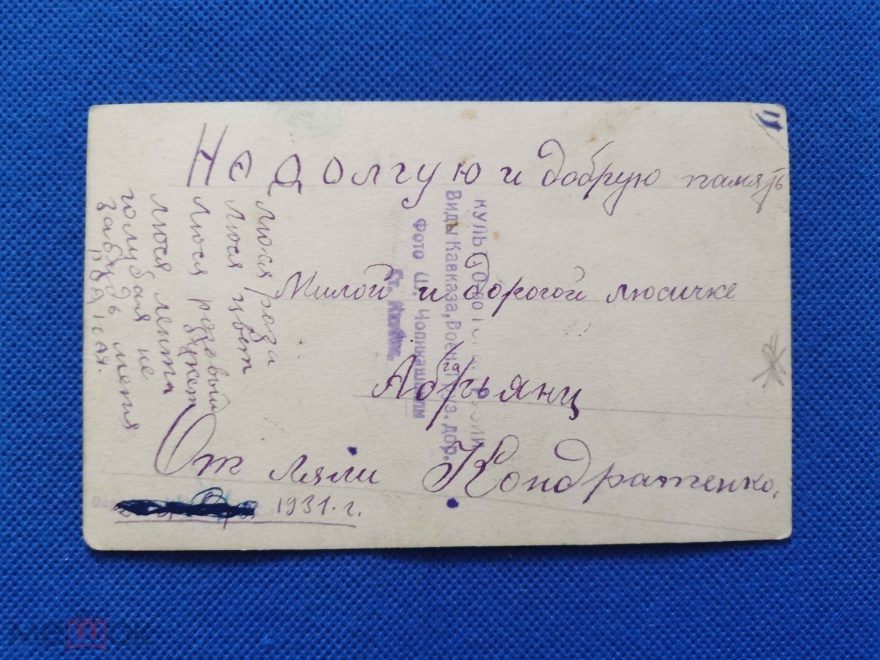 На долгую и добрую память
Милой и дорогой люсичке
Абгарьянц
От ляли Кондратенко.
1931. г.
Люся роза
Люся цвет
Люся розовый
букет
Люся лента
голубая не
забудь меня
Виды Кавказа, Воен. Груз. дор.
Фото Ш. Чопикашвили
11